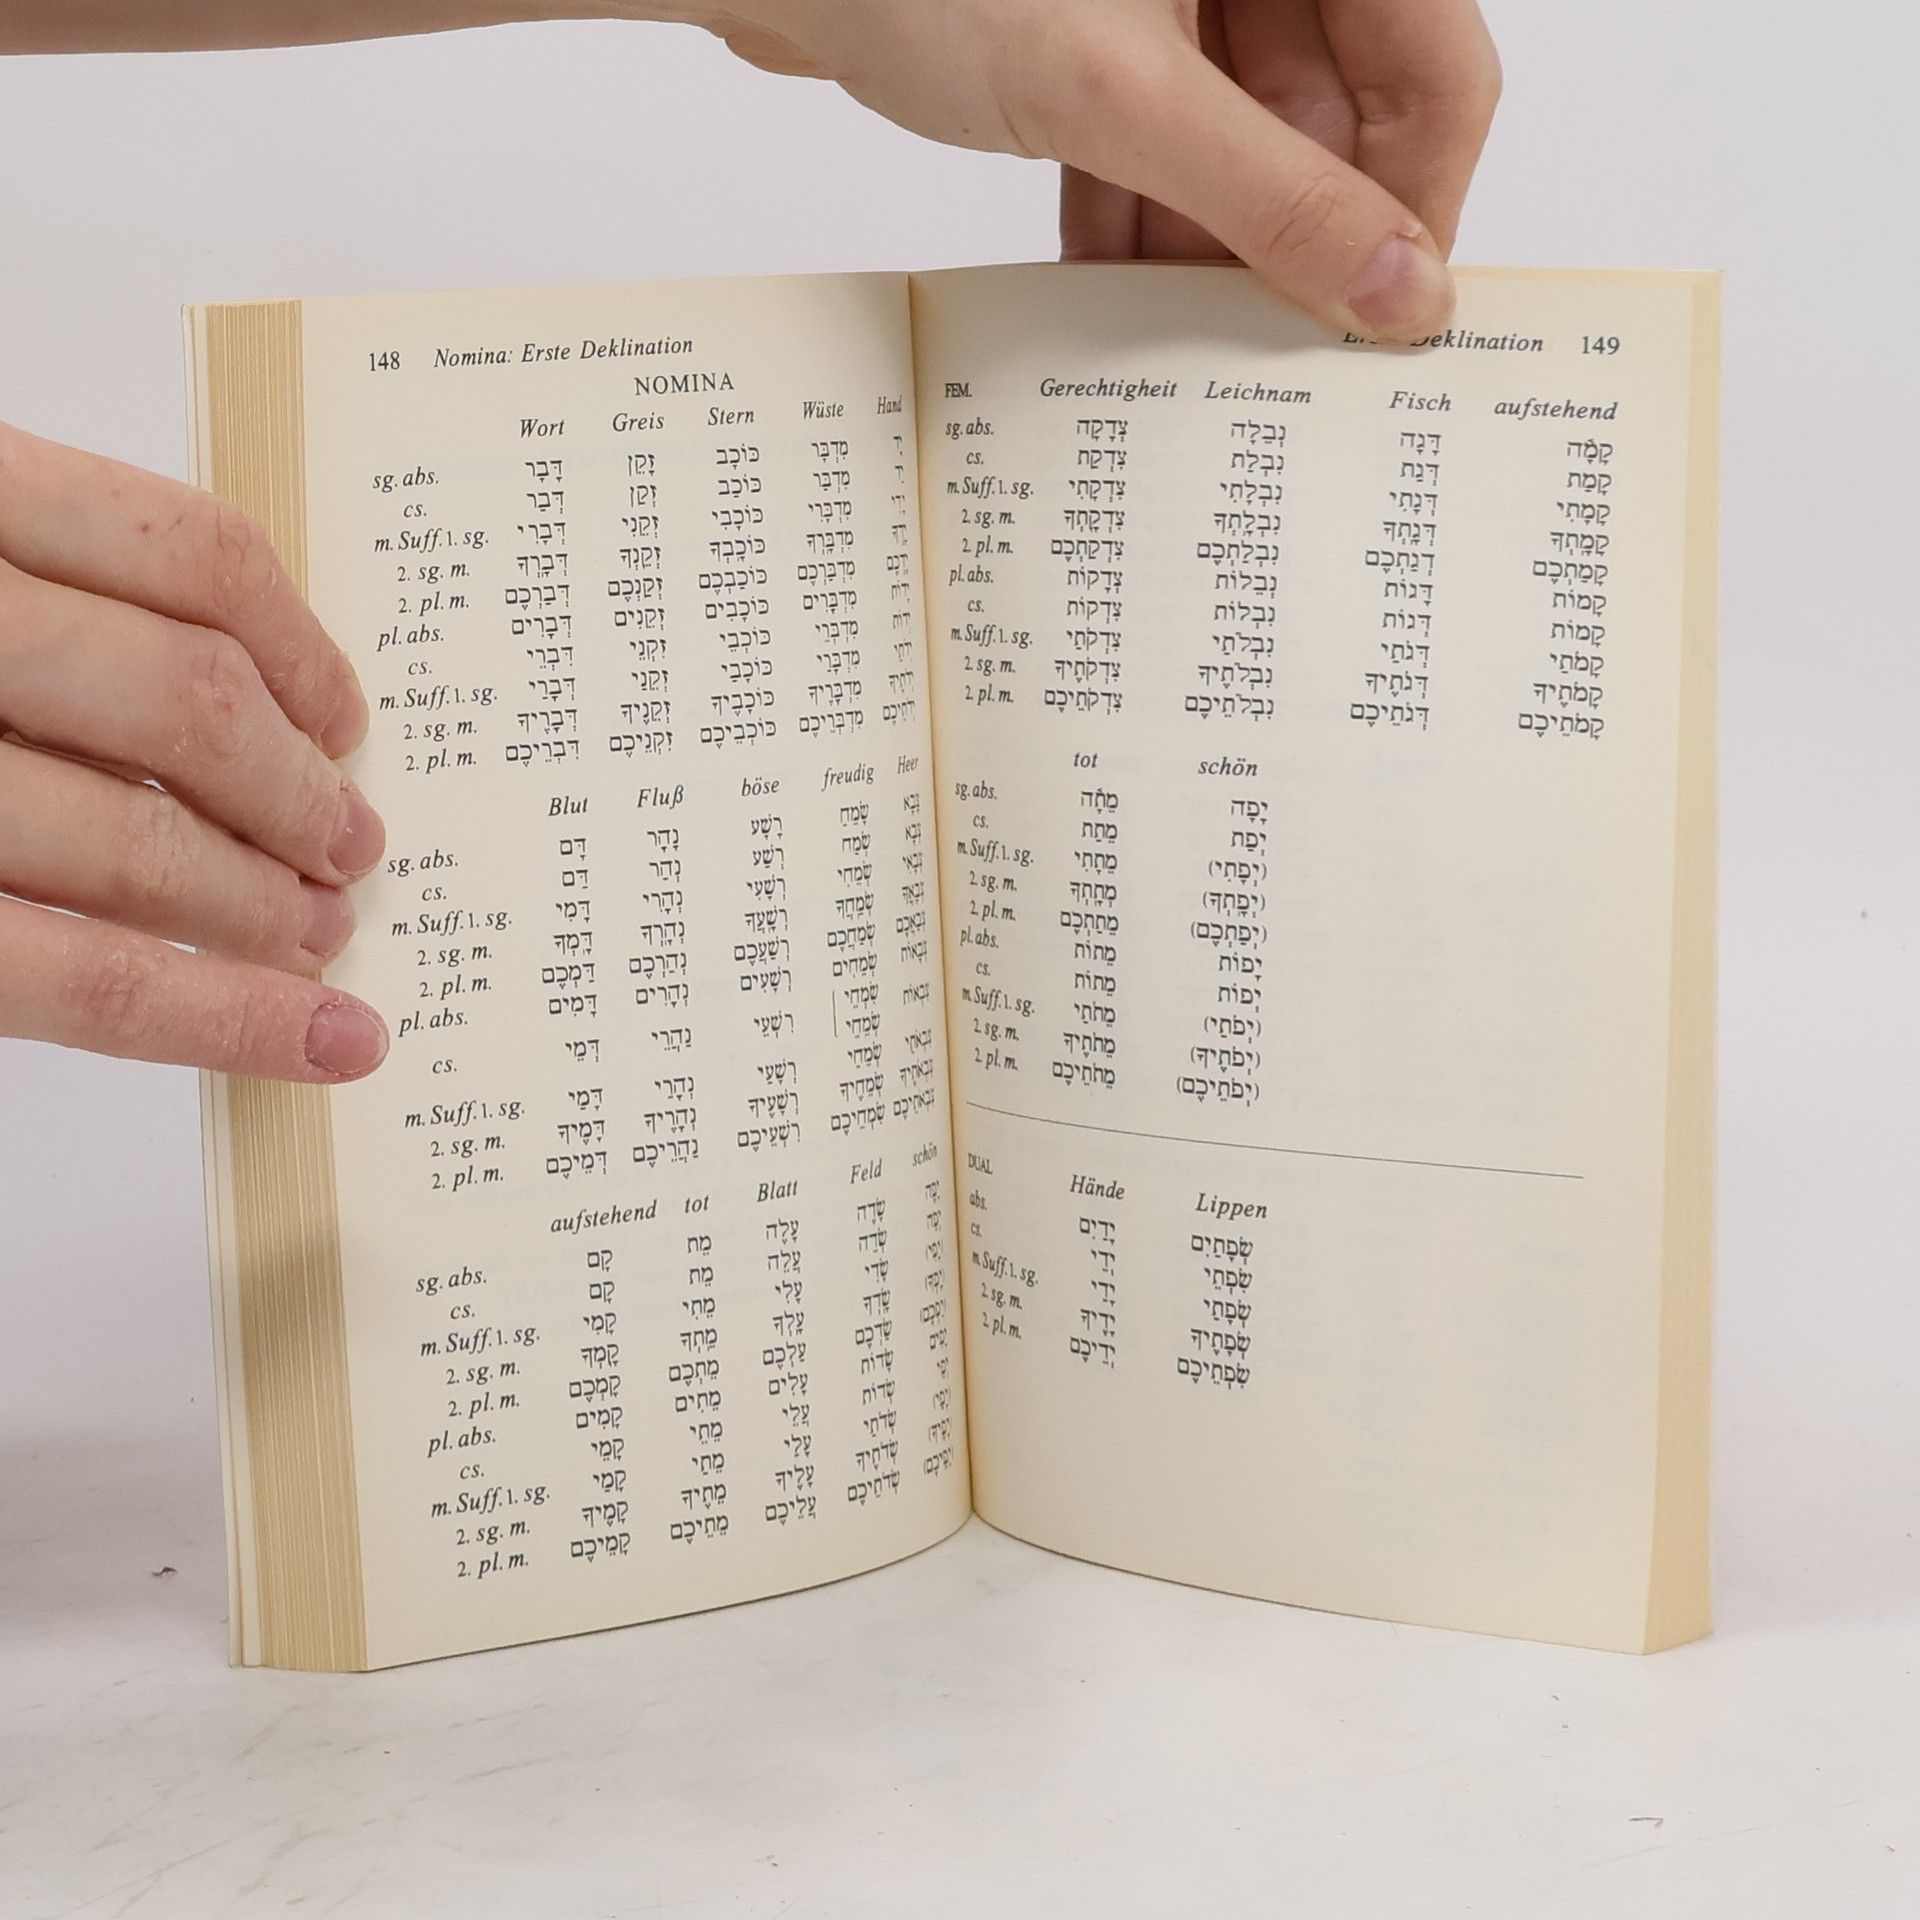 148 Nomina: Erste Deklination
NOMINA
Wort Greis Stern Wüste Hand
sg. abs. דָּבָר זָקֵן כּוֹכָב מִדְבָּר יָד
cs. דְּבַר זְקַן כּוֹכַב מִדְבַּר יַד
m. Suff. 1. sg. דְּבָרִי זְקֵנִי כּוֹכָבִי מִדְבָּרִי יָדִי
2. sg. m. דְּבָרְךָ זְקֵנְךָ כּוֹכָבְךָ מִדְבָּרְךָ
2. pl. m. דְּבַרְכֶם זְקַנְכֶם כּוֹכַבְכֶם מִדְבַּרְכֶם
pl. abs. דְּבָרִים זְקֵנִים כּוֹכָבִים מִדְבָּרִים יָדוֹת
cs. דִּבְרֵי זִקְנֵי כּוֹכְבֵי מִדְבְּרֵי יְדוֹת
m. Suff. 1. sg. דְּבָרַי זְקֵנַי כּוֹכָבַי מִדְבָּרַי
2. sg. m. דְּבָרֶיךָ זְקֵנֶיךָ כּוֹכָבֶיךָ מִדְבָּרֶיךָ
2. pl. m. דִּבְרֵיכֶם זִקְנֵיכֶם כּוֹכְבֵיכֶם מִדְבְּרֵיכֶם
Blut Fluß böse freudig Heer
sg. abs. דָּם נָהָר רָשָׁע שָׂמֵחַ צָבָא
cs. דַּם נְהַר רְשַׁע שְׂמַח צְבָא
m. Suff. 1. sg. דָּמִי נְהָרִי רְשָׁעִי שְׂמֵחִי צְבָאִי
2. sg. m. דָּמְךָ נְהָרְךָ רְשָׁעֲךָ שְׂמֵחֲךָ צְבָאֲךָ
2. pl. m. דַּמְכֶם נְהַרְכֶם רְשַׁעֲכֶם שְׂמַחֲכֶם צְבַאֲכֶם
pl. abs. דָּמִים נְהָרִים רְשָׁעִים שְׂמֵחִים צְבָאוֹת
שִׂמְחֵי
cs. דְּמֵי נַהֲרֵי רִשְׁעֵי שְׂמֵחֵי צִבְאוֹת
m. Suff. 1. sg. דָּמַי נְהָרַי רְשָׁעַי שְׂמֵחַי
2. sg. m. דָּמֶיךָ נְהָרֶיךָ רְשָׁעֶיךָ שְׂמֵחֶיךָ
2. pl. m. דְּמֵיכֶם נַהֲרֵיכֶם רִשְׁעֵיכֶם שִׂמְחֵיכֶם
aufstehend tot Blatt Feld schön
sg. abs. קָם מֵת עָלֶה שָׂדֶה יָפֶה
cs. קָם מֵת עֲלֵה שְׂדֵה יְפֵה
m. Suff. 1. sg. קָמִי מֵתִי עָלִי שָׂדִי
2. sg. m. קָמְךָ מֵתְךָ עָלְךָ שָׂדְךָ
2. pl. m. קָמְכֶם מֵתְכֶם עַלְכֶם שַׂדְכֶם
pl. abs. קָמִים מֵתִים עָלִים שָׂדוֹת יָפִים
cs. קָמֵי מֵתֵי עֲלֵי שְׂדוֹת יְפֵי
m. Suff. 1. sg. קָמַי מֵתַי עָלַי שְׂדֹתַי
2. sg. m. קָמֶיךָ מֵתֶיךָ עָלֶיךָ שְׂדֹתֶיךָ
2. pl. m. קָמֵיכֶם מֵתֵיכֶם עֲלֵיכֶם שְׂדֹתֵיכֶם
Deklination 149
FEM. Gerechtigheit Leichnam Fisch aufstehend
sg. abs. צְדָקָה נְבֵלָה דָּגָה קָמָה
cs. צִדְקַת נִבְלַת דְּגַת קָמַת
m. Suff. 1. sg. צִדְקָתִי נִבְלָתִי דְּגָתִי קָמָתִי
2. sg. m. צִדְקָתְךָ נִבְלָתְךָ דְּגָתְךָ קָמָתְךָ
2. pl. m. צִדְקַתְכֶם נִבְלַתְכֶם דְּגַתְכֶם קָמַתְכֶם
pl. abs. צְדָקוֹת נְבֵלוֹת דָּגוֹת קָמוֹת
cs. צִדְקוֹת נִבְלוֹת דְּגוֹת קָמוֹת
m. Suff. 1. sg. צִדְקֹתַי נִבְלֹתַי דְּגֹתַי קָמֹתַי
2. sg. m. צִדְקֹתֶיךָ נִבְלֹתֶיךָ דְּגֹתֶיךָ קָמֹתֶיךָ
2. pl. m. צִדְקֹתֵיכֶם נִבְלֹתֵיכֶם דְּגֹתֵיכֶם קָמֹתֵיכֶם
tot schön
sg. abs. מֵתָה יָפָה
cs. מֵתַת יְפַת
m. Suff. 1. sg. מֵתָתִי (יְפָתִי)
2. sg. m. מֵתָתְךָ (יְפָתְךָ)
2. pl. m. מֵתַתְכֶם (יְפַתְכֶם)
pl. abs. מֵתוֹת יָפוֹת
cs. מֵתוֹת יְפוֹת
m. Suff. 1. sg. מֵתֹתַי (יְפֹתַי)
2. sg. m. מֵתֹתֶיךָ (יְפֹתֶיךָ)
2. pl. m. מֵתֹתֵיכֶם (יְפֹתֵיכֶם)
DUAL Hände Lippen
abs. יָדַיִם שְׂפָתַיִם
cs. יְדֵי שִׂפְתֵי
m. Suff. 1. sg. יָדַי שְׂפָתַי
2. sg. m. יָדֶיךָ שְׂפָתֶיךָ
2. pl. m. יְדֵיכֶם שִׂפְתֵיכֶם